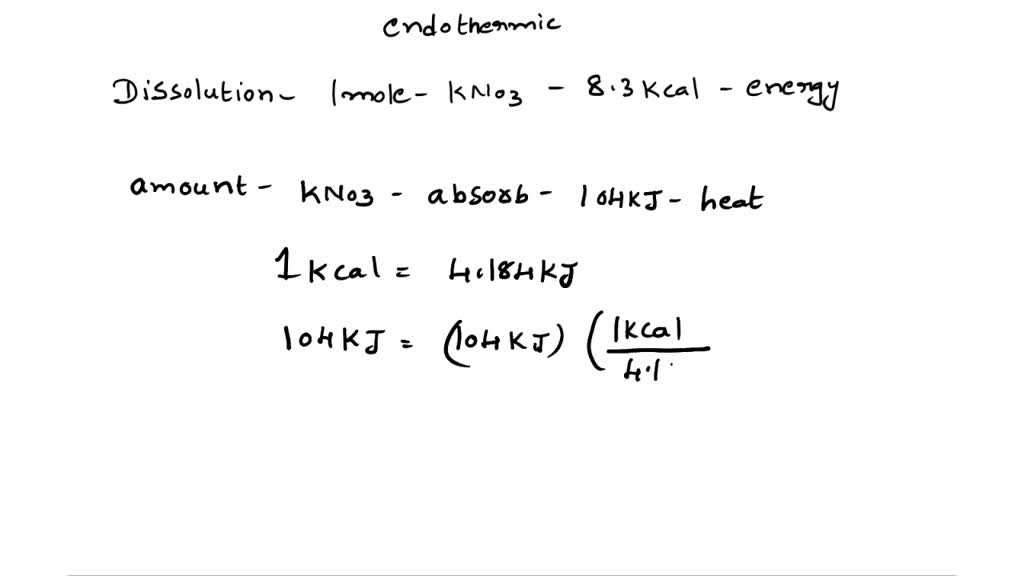 endothermic
Dissolution - 1 mole - KNO3 - 8.3 Kcal - energy
amount - KNO3 - absorb - 104KJ - heat
1 Kcal = 4.184KJ
104KJ = (104KJ) (1Kcal
4.1